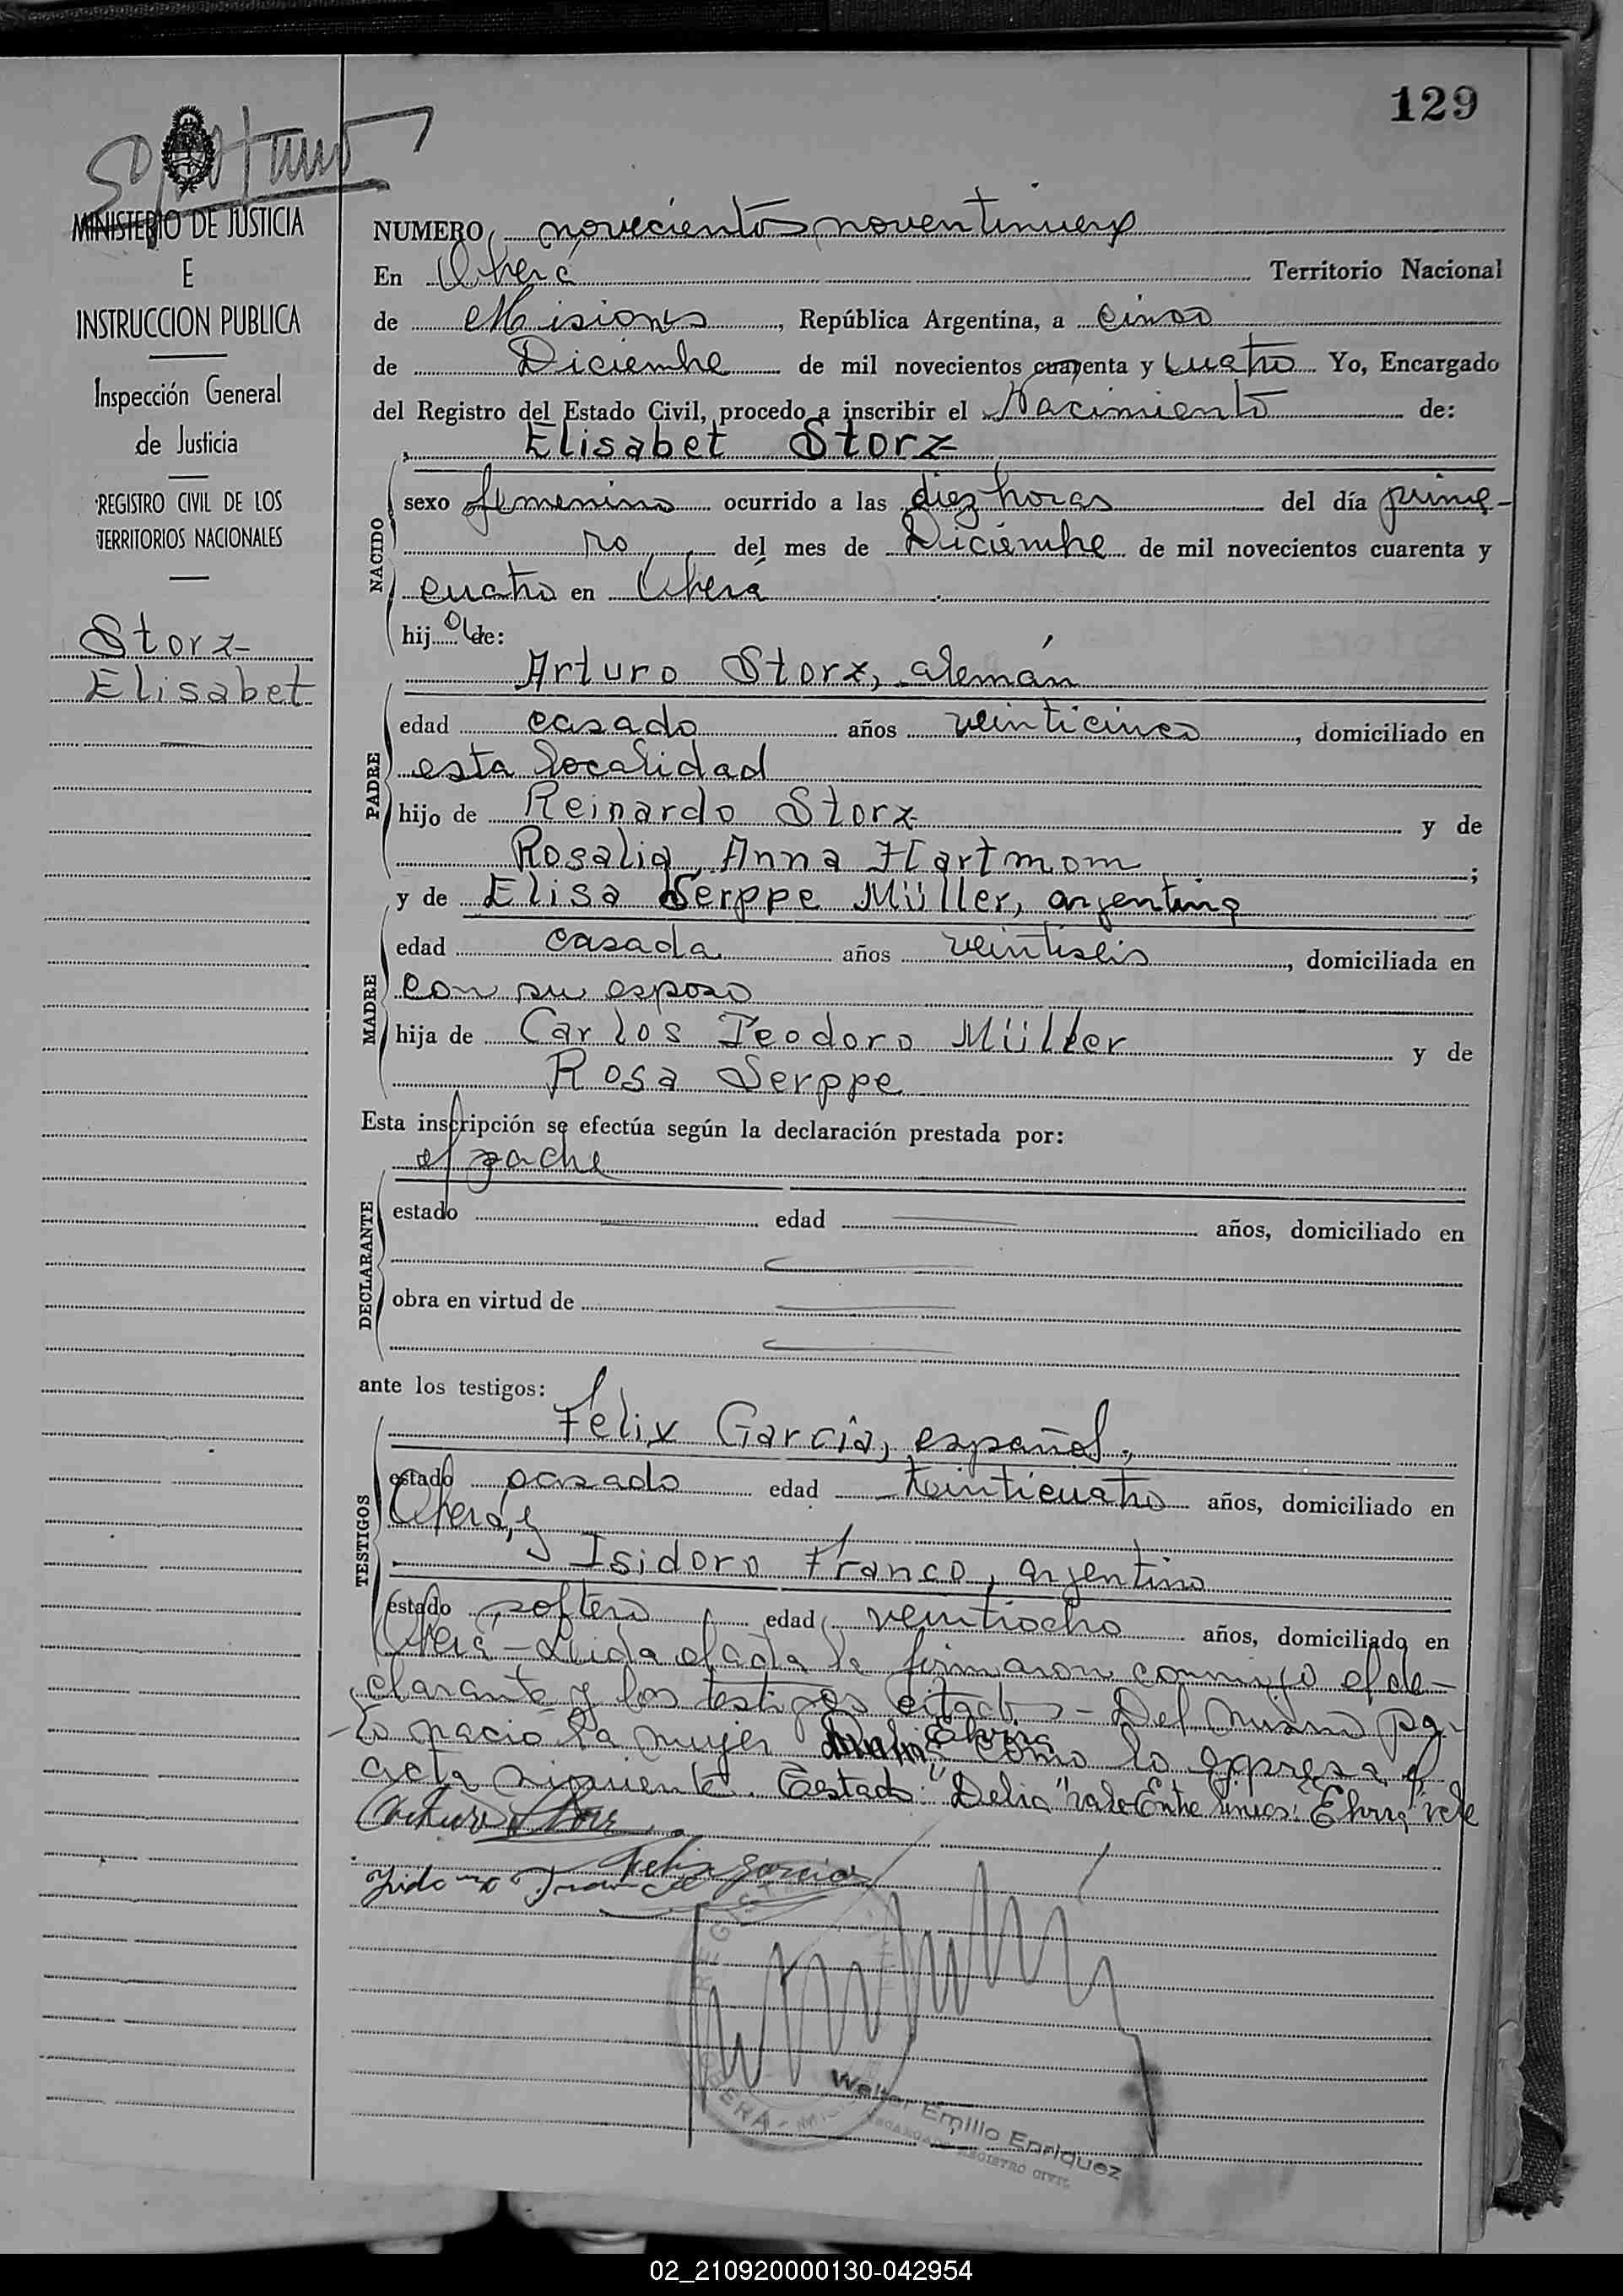 129
MINISTERIO DE JUSTICIA
E
INSTRUCCION PUBLICA
Inspección General
de Justicia
REGISTRO CIVIL DE LOS
TERRITORIOS NACIONALES
Storz
Elisabet
NUMERO novecientos noventinueve
En Oberá Territorio Nacional
de Misiones, República Argentina, a cinco
de Diciembre de mil novecientos cuarenta y cuatro Yo, Encargado
del Registro del Estado Civil, procedo a inscribir el Nacimiento de:
Elisabet Storz
NACIDO
sexo femenino ocurrido a las diez horas del día prime-
ro del mes de Diciembre de mil novecientos cuarenta y
cuatro en Oberá
hij a de:
Arturo Storz, alemán
PADRE
edad casado años veinticinco, domiciliado en
esta localidad
hijo de Reinardo Storz y de
Rosalia Anna Hartmom;
y de Elisa Serppe Müller, argentina
MADRE
edad casada años veintiseis, domiciliada en
con su esposo
hija de Carlos Teodoro Müller y de
Rosa Serppe
Esta inscripción se efectúa según la declaración prestada por:
el padre
DECLARANTE
estado edad años, domiciliado en
obra en virtud de
ante los testigos:
Felix García, español,
TESTIGOS
estado casado edad treinticuatro años, domiciliado en
Oberá, y
Isidoro Franco, argentino
estado soltero edad veintiocho años, domiciliado en
Oberá - Leida el acta la firmaron conmigo el de-
clarante y los testigos citados - Del mismo par-
to nació la mujer Elvira como lo expresa el
acta siguiente. Testado: "Delia" vale Entre lineas: "Elvira" vale
Arturo Storz
Felix Garcia
Isidoro Franco
OBERÁ
Walter Emilio Enriquez
ENCARGADO REGISTRO CIVIL
02_210920000130-042954